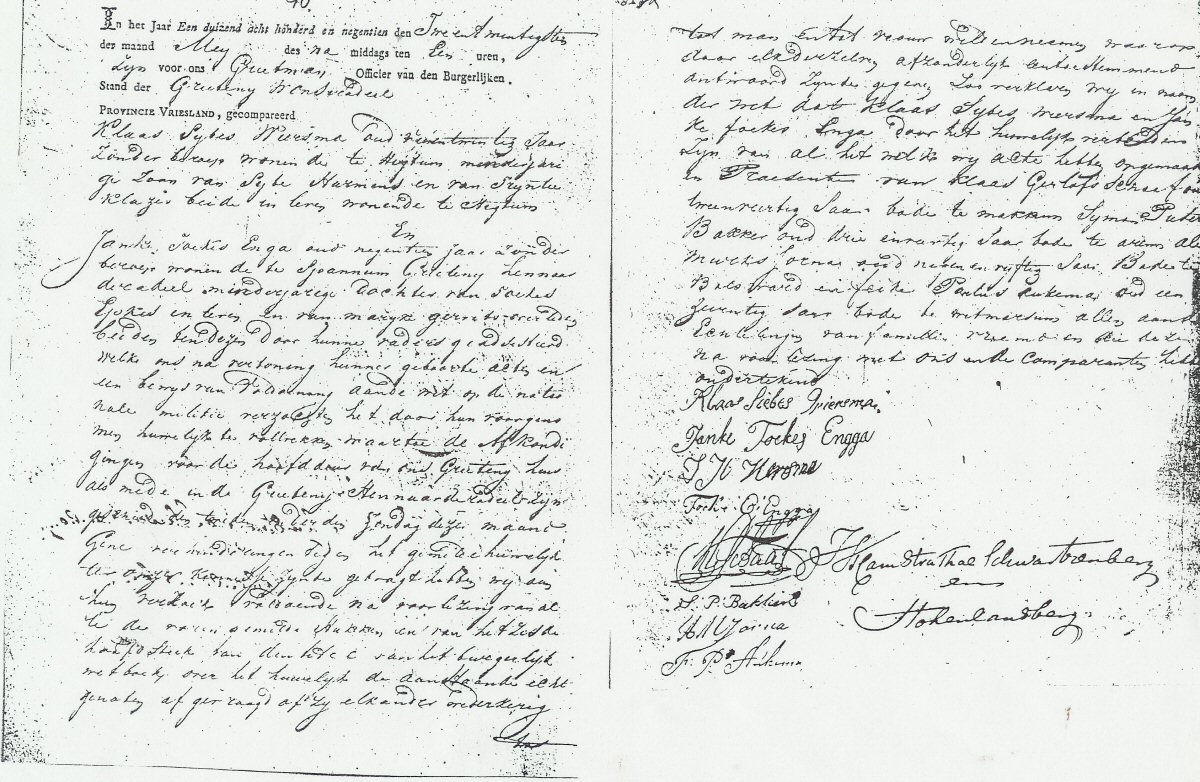 In het Jaar Een duizend acht honderd en negentien den Twee en twintigsten
der maand Mey des na middags ten Een uren,
Zyn voor ons Grietman Officier van den Burgerlijken
Stand der Grieteny Wonseradeel
PROVINCIE VRIESLAND, gecompareerd
Klaas Sybes Wiersma oud Jaar
Zonder beroep wonende te minderjari
ge Zoon van Sybe Harmens en van Tryntie
Klazes beide in leven wonende te
En
Janke Fockes Enga oud negentien Jaar zonder
beroep wonende te Spannum Grieteny Hennaar
deradeel minderjarige Dochter van Fockes
Ejokes in leven en van maryke gerrits overleden
beiden ten dezen door hunne vaders geadsisteerd
welke ons na vertoning hunner geboorte acten en
een bewys van Voldoening aande wet op de natio
nale militie verzogten het door hun voorgeno
men huwelyk te voltrekken waartoe de Afkondi
gingen voor de hoofddeur van ons Grieteny huis
als mede in de Grieteny Hennaarderadeel zyn
geschied den Zondag dezer maand
Gene verhinderingen tegen het gemelde huwelyk
ter onzer Kennisse zynde gebragt hebben wy aan
hun verzoek voldoende na voorlezing van al
le de voren gemelde stukken en van het zesde
hoofdstuk van den titel van het burgerlyk
wetboek, over het huwelyk de aanstaande echt-
genoten af gevraagd of zy elkander wederkerig
tot
tot man en tot vrouw wilden nemen waarop
door elk derzelven afzonderlyk toestemmend
antwoord zynde gegeven Zoo verklaren wy in naam
der wet dat Klaas Sybes Wiersma en Jan
ke fockes Enga door het huwelyk verbonden
zyn van al het welk wy acte hebben opgemaakt
in Præsentie van Klaas Gerlofs
tweenveertig Jaar bode te makkum Symon Pieters
Bakker oud drie enveertig Jaar bode te arum
Jorna oud nevenenvyftig Jaar Bode te
Bolsward en feike Paulus Aukema oud een
zeventig Jaar bode te witmarsum allen
van familie vreemd en die deze
na voorlezing met ons en de Comparanten hebben
ondertekend
Klaas Siebes Wiersma.
Janke Fockes Engga
S H Wersma
Focke E Engga
S. P. Bakker
A M Jorna
F. Ps Aukema
Schwartzenberg
en
Hohenlansberg.